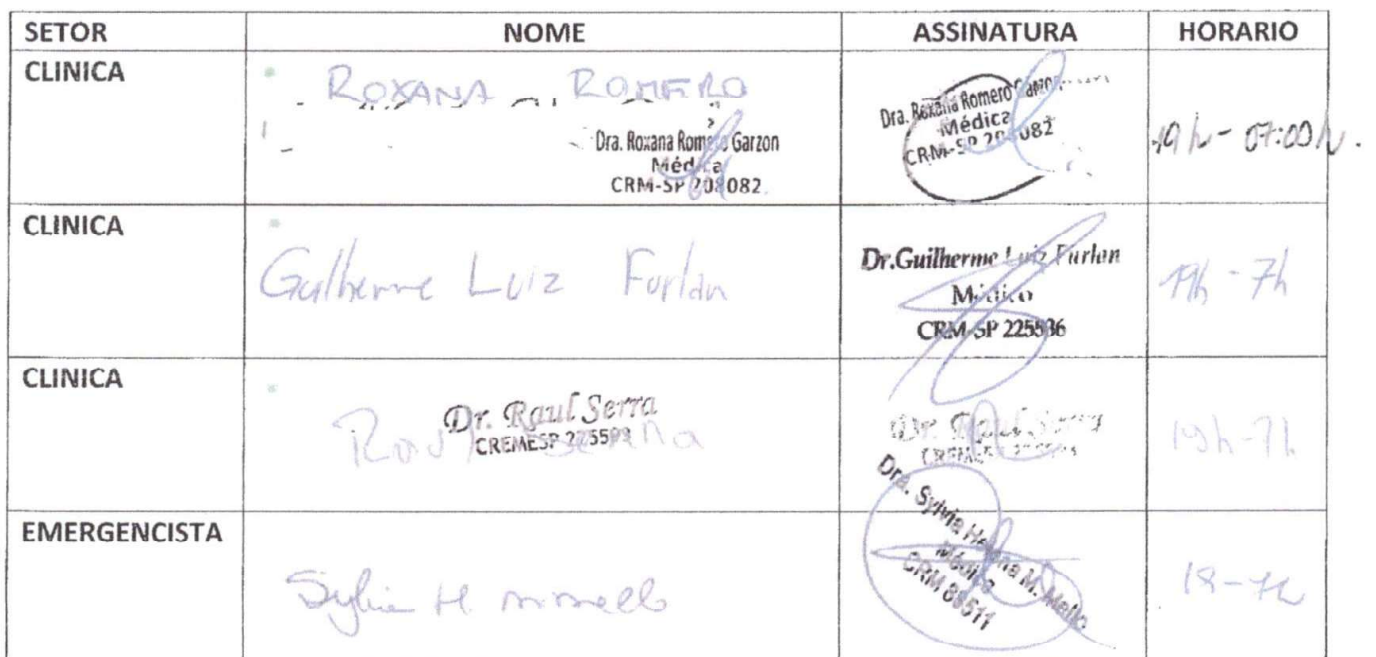 SETOR NOME ASSINATURA HORARIO
CLINICA ROXANA ROMERO
Dra. Roxana Romero Garzon
Médica
CRM-SP 208082
Dra. Roxana Romero Garzon
Médica
CRM-SP 208082
19h - 07:00h.
CLINICA Guilherme Luiz Furlan
Dr.Guilherme Luiz Furlan
Médico
CRM-SP 225536
19h - 7h
CLINICA
Dr. Raul Serra
CREMESP
Raul Serra
Dr. Raul Serra
CREMESP
19h-7h
EMERGENCISTA Sylvia H.
Dra. Sylvia Helena M. Mello
Médica
CRM 88511